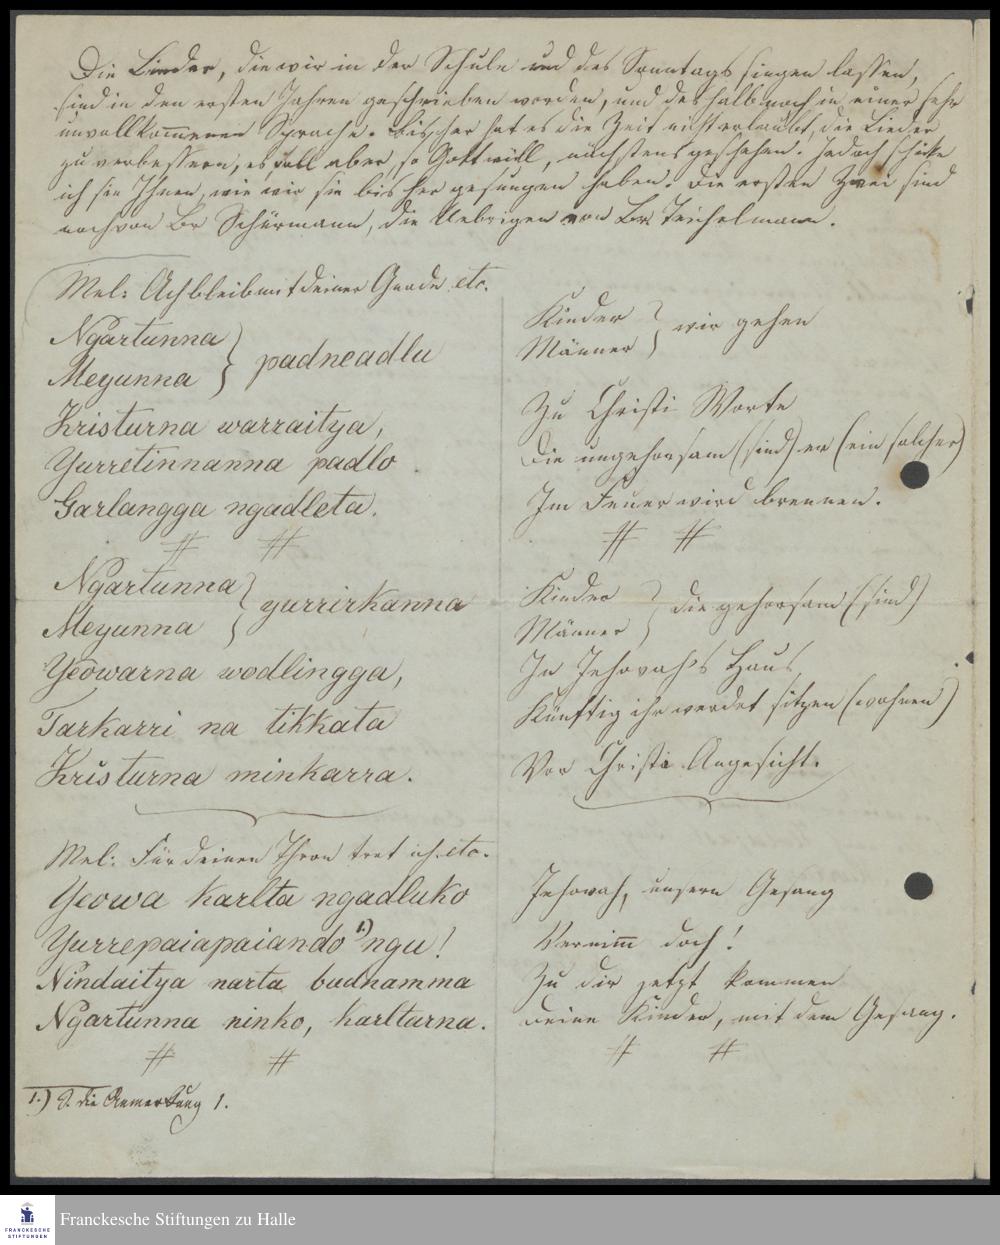 Die Lieder, die wir in der Schule und des Sonntags singen lassen,
sind in den ersten Jahren geschrieben worden, und deshalb noch in einer sehr
unvollkom̅enen Sprache. Bisher hat es die Zeit nicht erlaubt, die Lieder
zu verbessern, es soll aber, so Gott will, nächstens geschehen. Jedoch schicke
ich sie Ihnen, wie wir sie bisher gesungen haben. Die ersten zwei sind
noch von Br Schürmann, die Uebrigen von Br. Teichelmann.
Mel: Ach bleib mit deiner Gnade etc.
Ngartunna
Meyunna } padneadlu
Kristurna warraitya,
Yurretinnanna padlo
Garlangga ngadleta.
Kinder
Männer } wir gehen
Zu Christi Worte
Die ungehorsam (sind) er (ein solcher)
Im Feuer wird brennen.
Ngartunna
Meyunna } yurrirkanna
Yeowarna wodlingga,
Tarkarri na tikkata
Kristurna minkarra.
Kinder
Männer } die gehorsam (sind)
In Jehovah's Haus
Künftig ihr werdet sitzen (wohnen)
Vor Christi Angesicht.
Mel: Für deinen Thron tret ich. etc.
Yeowa karlta ngadluko
Yurrepaiapaiando 1.) ngu!
Nindaitya narta budnamma
Ngartunna ninko, karlturna.
Jehovah, unsern Gesang
Vernim̅ doch!
Zu dir jetzt kommen
Deine Kinder, mit dem Gesang.
1.) S. die Anmerkung 1.
FRANCKESCHE
STIFTUNGEN
Franckesche Stiftungen zu Halle